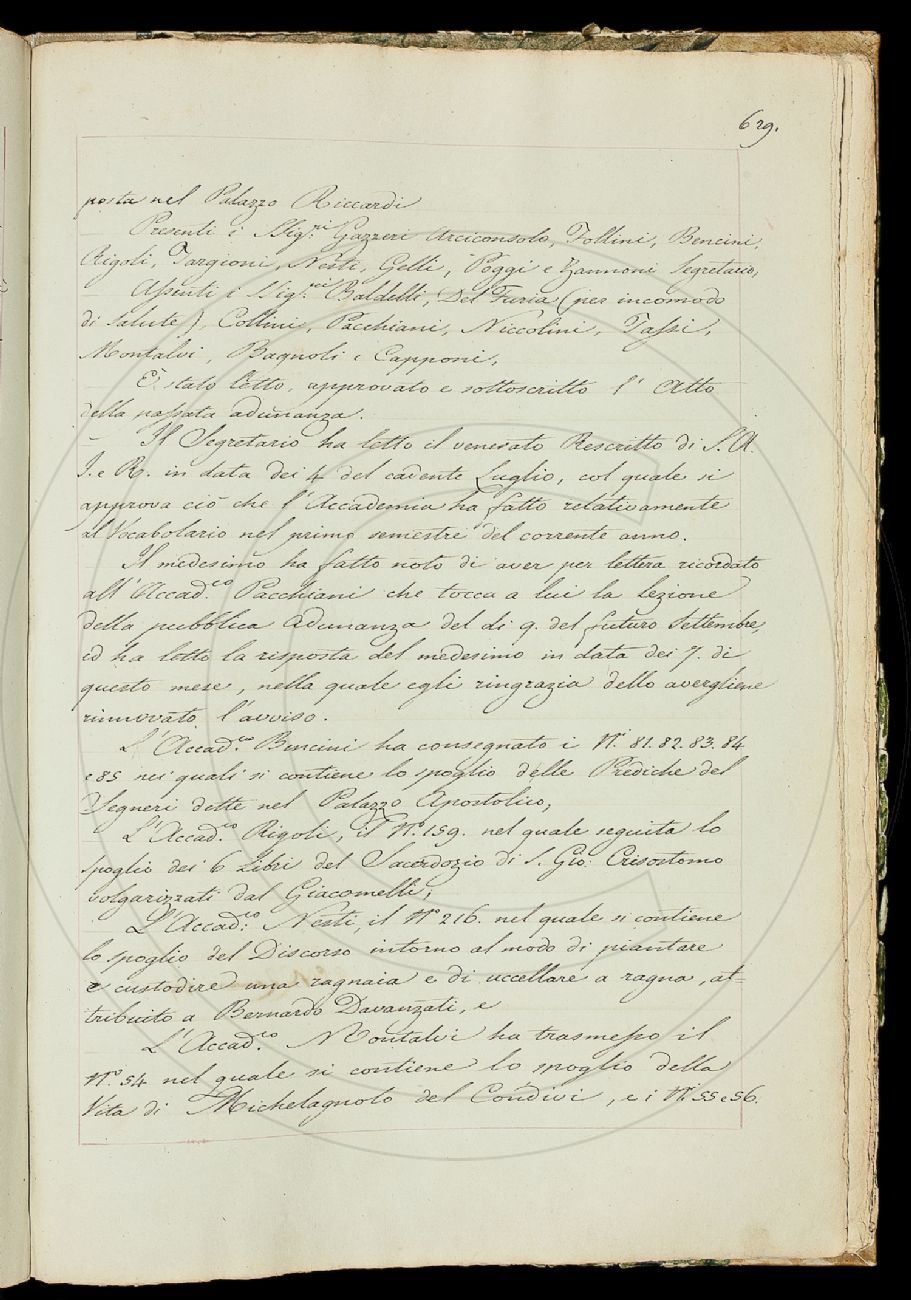 629.
posta nel Palazzo Riccardi
Presenti i SSig.ri Gazzeri Arciconsolo, Follini, Bencini,
Rigoli, Targioni, Nesti, Gelli, Poggi e Zannoni Segretario;
Assenti i SSig.ri Baldelli, Del Furia (per incomodo
di salute) Collini, Pacchiani, Niccolini, Tassi,
Montalvi, Bagnoli e Capponi.
È stato letto, approvato e sottoscritto l'Atto
della passata adunanza.
Il Segretario ha letto il venerato Rescritto di S. A.
I. e R. in data dei 4 del cadente Luglio, col quale si
approva ciò che l'Accademia ha fatto relativamente
al Vocabolario nel primo semestre del corrente anno.
Il medesimo ha fatto noto di aver per lettera ricordato
all'Accad.co Pacchiani che tocca a lui la Lezione
della pubblica Adunanza del dì 9. del futuro Settembre,
ed ha letto la risposta del medesimo in data dei 7. di
questo mese, nella quale egli ringrazia dello avergliene
rinnovato l'avviso.
L'Accad.co Bencini ha consegnato i N.i 81. 82. 83. 84
e 85 nei quali si contiene lo spoglio delle Prediche del
Segneri dette nel Palazzo Apostolico;
L'Accad.co Rigoli, il N.o 159. nel quale seguita lo
spoglio dei 6 Libri del Sacerdozio di S. Gio: Crisostomo
volgarizzati dal Giacomelli;
L'Accad.co Nesti, il N.o 216. nel quale si contiene
lo spoglio del Discorso intorno al modo di piantare
e custodire una ragnaia e di uccellare a ragna, at=
tribuito a Bernardo Davanzati, e
L'Accad.co Montalvi ha trasmesso il
N.o 54 nel quale si contiene lo spoglio della
Vita di Michelagnolo del Condivi, e i N.i 55 e 56.